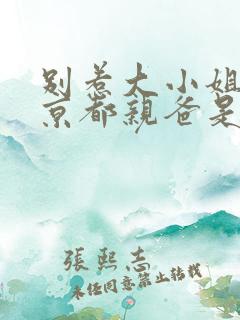 别惹大小姐
京都親爸是
張熙志
未经同意禁止转载